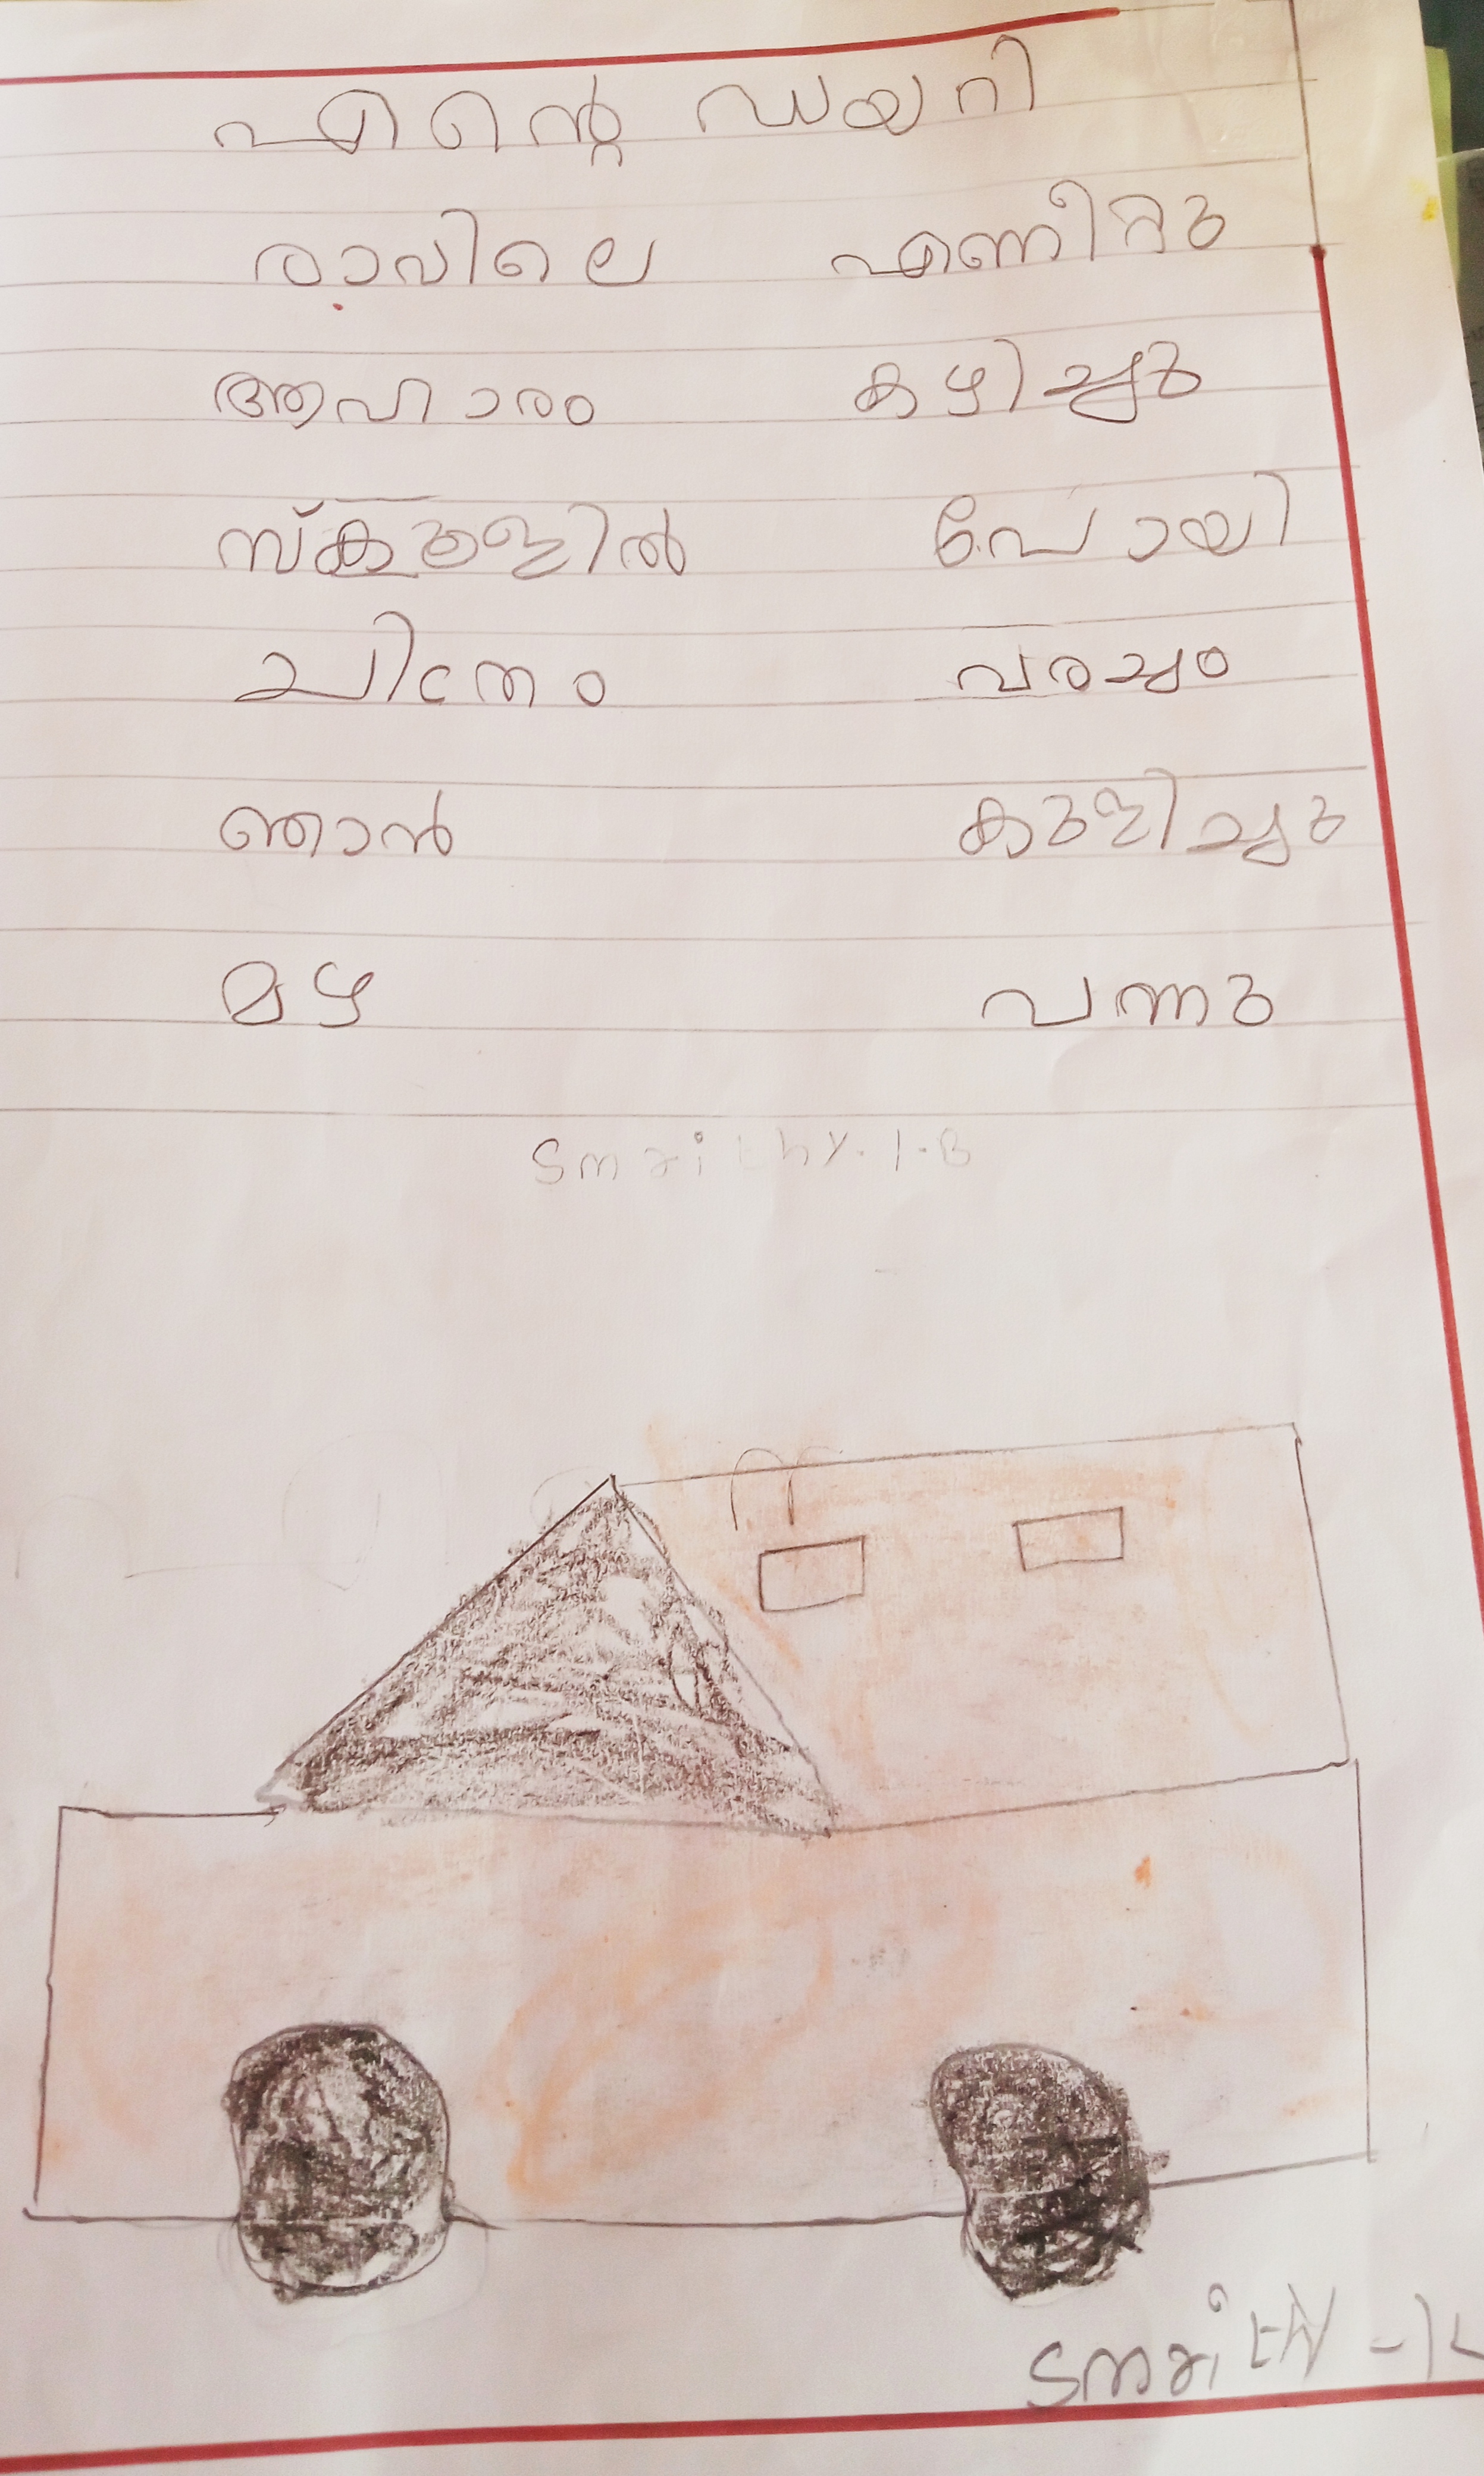 എന്റെ ഡയറി
രാവിലെ എണീറ്റു
ആഹാരം കഴിച്ചു
സ്കൂളിൽ പോയി
ചിത്രം വരച്ചം
ഞാൻ കുളിച്ചു
മഴ വന്നു
Smrithy. 1.B
Smrithy